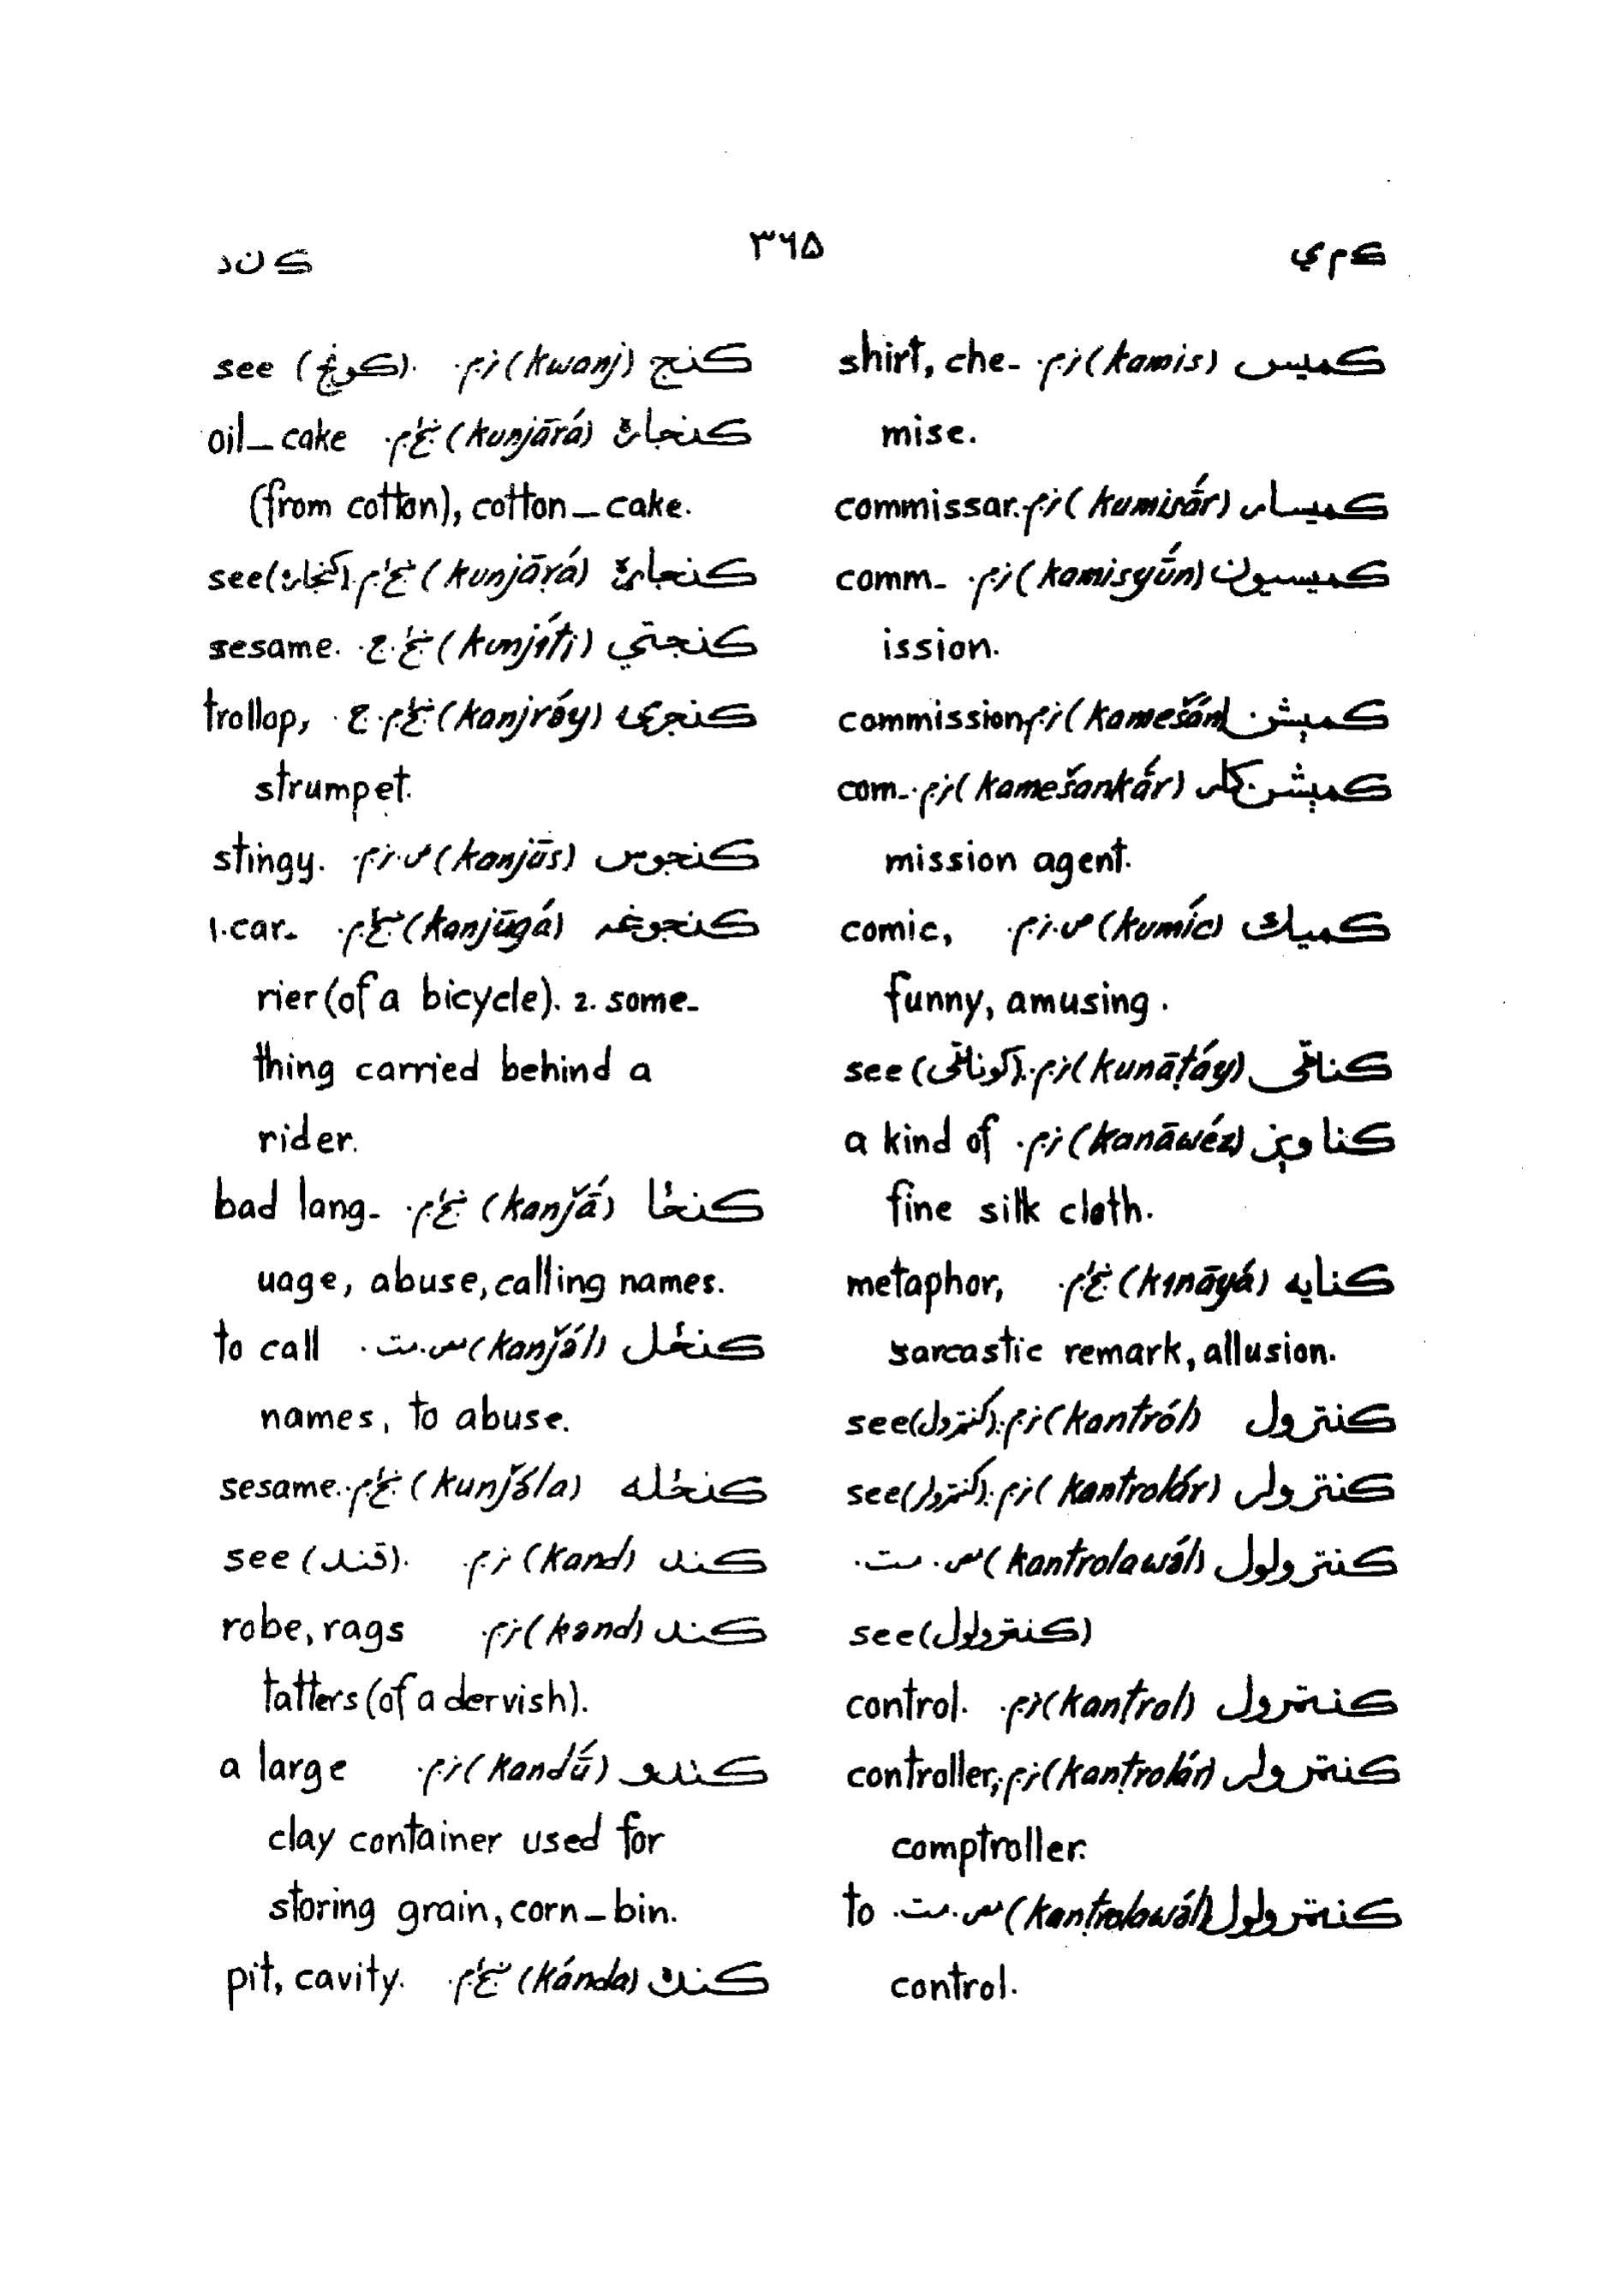 كمي ۳۶۵ كند
كميس (kamis) ز.م. shirt, che-
mise.
كميسار (kumisā́r) ز.م. commissar.
كميسيون (kamisyū́n) ز.م. comm-
ission.
كمېشن (kamešán) ز.م. commission
كمېشن كار (kamešankā́r) ز.م. com-
mission agent.
كميك (kumíc) ص.ز.م. comic,
funny, amusing.
كناټى (kunāṭáy) ز.م. see (كوناټى).
كناوېز (kanāwéz) ز.م. a kind of
fine silk cloth.
كنايه (kināyá) ښځ.م. metaphor,
sarcastic remark, allusion.
كنترول (kantról) ز.م. see (كنټرول).
كنترولر (kantrolár) ز.م. see (كنټرولر).
كنترولول (kantrolawə́l) س.مت.
see (كنټرولول)
كنټرول (kanṭrol) ز.م. control.
كنټرولر (kanṭrolár) ز.م. controller,
comptroller.
كنټرولول (kanṭrolawə́l) س.مت. to
control.
كنج (kwanj) ز.م. see (كونج).
كنجاره (kunjārá) ښځ.م. oil-cake
(from cotton), cotton-cake.
كنجاړه (kunjāṛá) ښځ.م. see (كنجاره).
كنجتي (kunjíti) ښځ.ج. sesame.
كنجرۍ (kanjrə́y) ښځ.م.ج. trollop,
strumpet.
كنجوس (kanjūs) ص.ز.م. stingy.
كنجوغه (kanjūgá) ښځ.م. 1. car-
rier (of a bicycle). 2. some-
thing carried behind a
rider.
كنځا (kanǰā́) ښځ.م. bad lang-
uage, abuse, calling names.
كنځل (kanǰə́l) س.مت. to call
names, to abuse.
كنځله (kunǰə́la) ښځ.م. sesame.
كند (kand) ز.م. see (قند).
كند (kənd) ز.م. robe, rags
tatters (of a dervish).
كندو (kandū́) ز.م. a large
clay container used for
storing grain, corn-bin.
كنده (kánda) ښځ.م. pit, cavity.